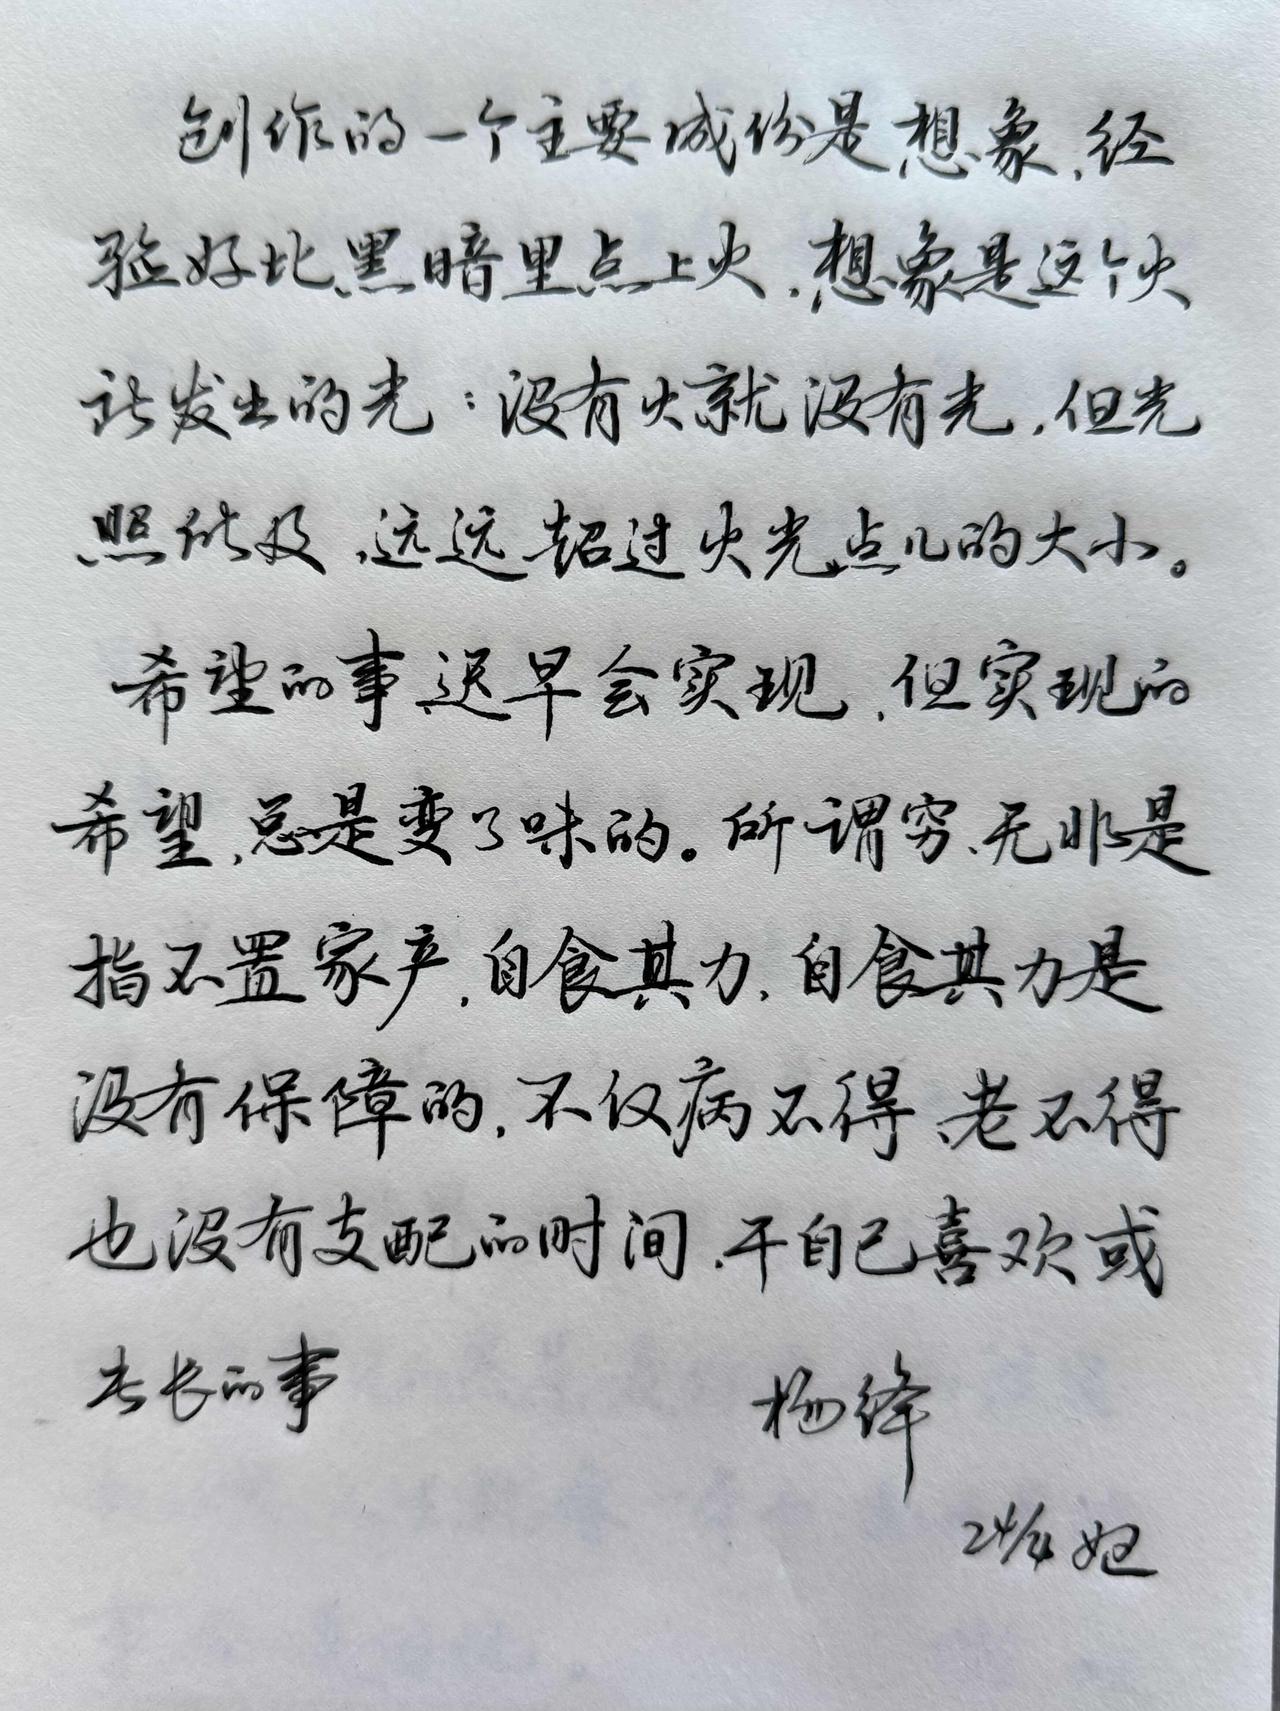 创作的一个主要成份是想象，经
验好比黑暗里点上火，想象是这个火
所发出的光：没有火就没有光，但光
照所及，远远超过火光点儿的大小。
希望的事迟早会实现，但实现的
希望，总是变了味的。所谓穷、无非是
指不置家产，自食其力，自食其力是
没有保障的，不仅病不得、老不得
也没有支配的时间，干自己喜欢或
专长的事
杨绛
24/4